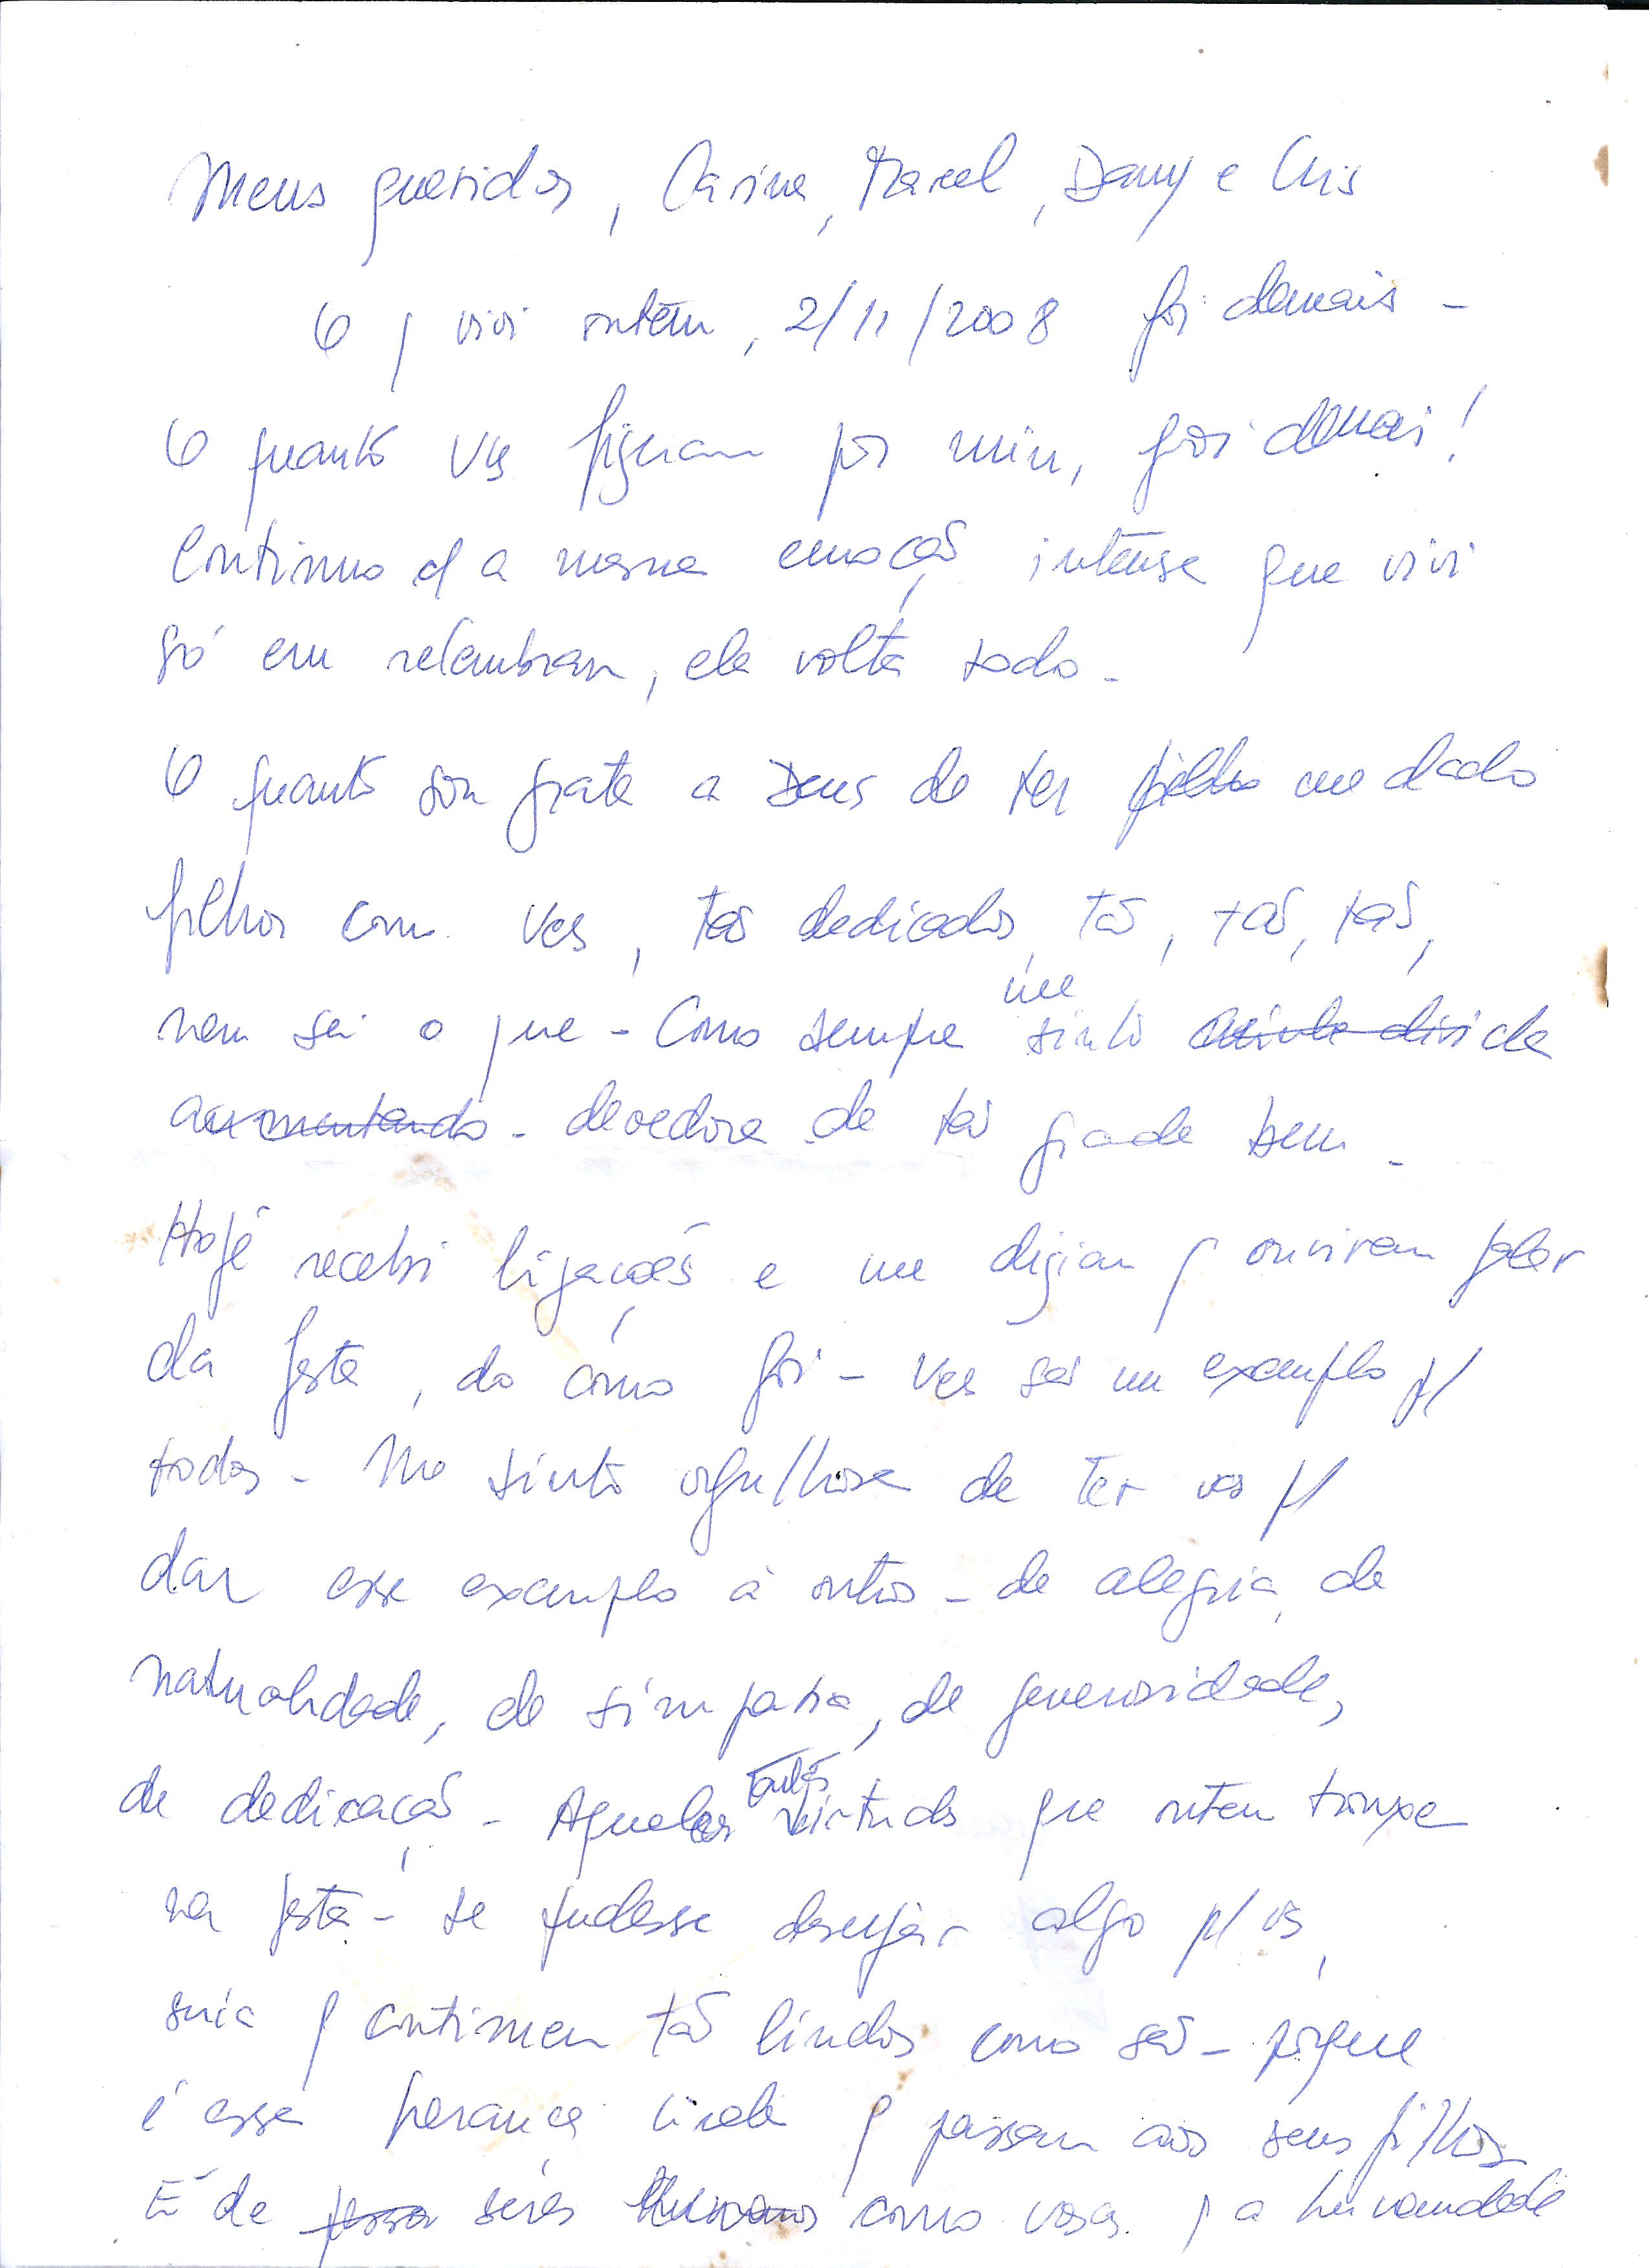 Meus queridos, Carina, Marcel, Dany e Cris
O q vivi ontem, 2/11/2008 foi demais -
O quanto vcs fizeram por mim, foi demais!
Continuo c/ a mesma emoção intensa que vivi
só em relembrar, ela volta toda -
O quanto sou grata a Deus de ter filhos me dado
filhos como vcs, tão dedicados, tão, tão, tão,
nem sei o que - Como sempre me sinto divida
aumentando - devedora de tão grade bem -
Hoje recebi ligações e me diziam q ouviram falar
da festa, do como foi - Vcs são um exemplo p/
todos - Me sinto orgulhosa de ter vcs p/
dar esse exemplo à outros - de alegria, de
naturalidade, de simpatia, de generosidade,
de dedicação - Aquelas tantas virtudes que ontem trouxe
na festa - se pudesse desejar algo p/ vcs,
seria q continuem tão lindos como são - porque
é essa herança linda q passam aos seus filhos
É de seres humanos como vocs. q a humanidade